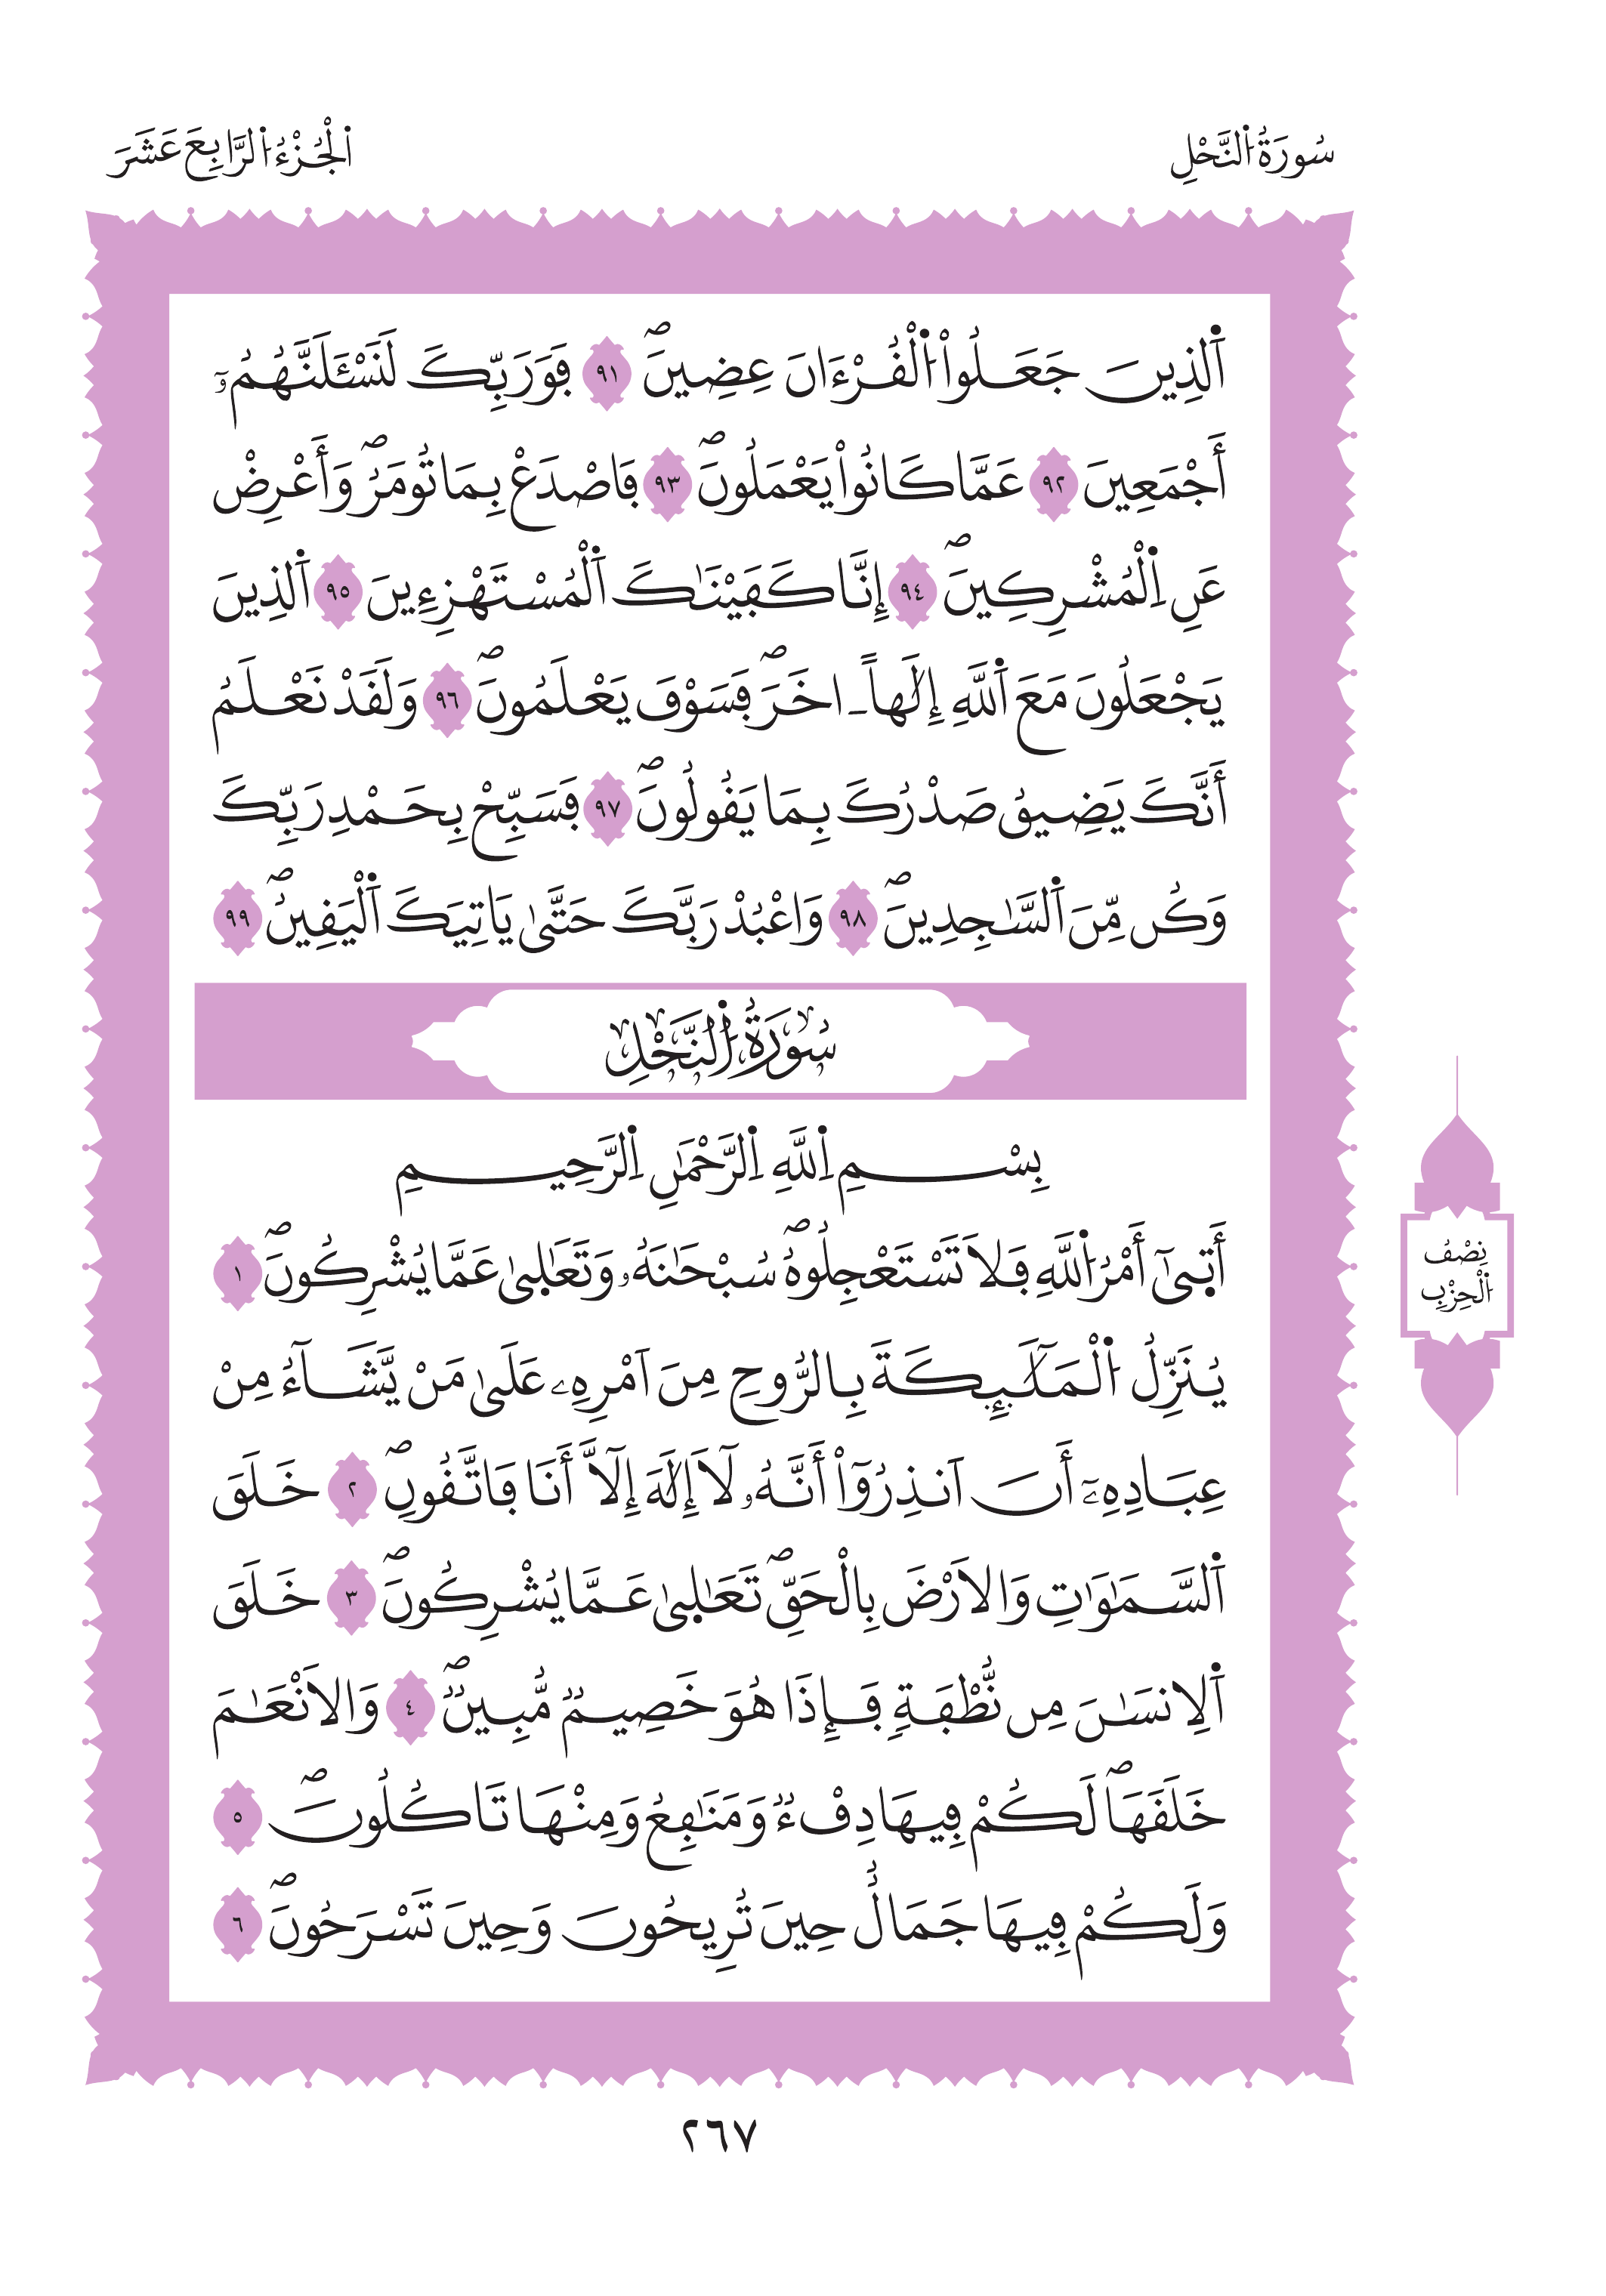 سُورَةُ اُ۬لنَّحْلِ
اَ۬لْجُزْءُ اُ۬لرَّابِعَ عَشَرَ
اَ۬لذِينَ جَعَلُواْ اُ۬لْقُرْءَانَ عِضِينَۖ ٩١ فَوَرَبِّكَ لَنَسْـَٔلَنَّهُمُۥٓ
أَجْمَعِينَ ٩٢ عَمَّا كَانُواْ يَعْمَلُونَۖ ٩٣ فَاصْدَعْ بِمَا تُومَرُۖ وَأَعْرِضْ
عَنِ اِ۬لْمُشْرِكِينَۖ ٩٤ إِنَّا كَفَيْنَٰكَ اَ۬لْمُسْتَهْزِءِينَ ٩٥ اَ۬لذِينَ
يَجْعَلُونَ مَعَ اَ۬للَّهِ إِلَٰهاً ـ اخَرَۖ فَسَوْفَ يَعْلَمُونَۖ ٩٦ وَلَقَدْ نَعْلَمُ
أَنَّكَ يَضِيقُ صَدْرُكَ بِمَا يَقُولُونَۖ ٩٧ فَسَبِّحْ بِحَمْدِ رَبِّكَ
وَكُن مِّنَ اَ۬لسَّٰجِدِينَۖ ٩٨ وَاعْبُدْ رَبَّكَ حَتَّىٰ يَاتِيَكَ اَ۬لْيَقِينُۖ ٩٩
سُورَةُ اُ۬لنَّحْلِ
بِسْمِ اِ۬للَّهِ اِ۬لرَّحْمَٰنِ اِ۬لرَّحِيمِ
أَت۪ىٰٓ أَمْرُ اُ۬للَّهِ فَلَا تَسْتَعْجِلُوهُۖ سُبْحَٰنَهُۥ وَتَعَٰل۪ىٰ عَمَّا يُشْرِكُونَۖ ١
يُنَزِّلُ اُ۬لْمَلَٰٓئِكَةَ بِالرُّوحِ مِنَ اَمْرِهِۦ عَلَىٰ مَنْ يَّشَآءُ مِنْ
عِبَادِهِۦٓ أَنَ اَنذِرُوٓاْ أَنَّهُۥ لَآ إِلَٰهَ إِلَّآ أَنَا فَاتَّقُونِۖ ٢ خَلَقَ
اَ۬لسَّمَٰوَٰتِ وَالَارْضَ بِالْحَقِّۖ تَعَٰل۪ىٰ عَمَّا يُشْرِكُونَۖ ٣ خَلَقَ
اَ۬لِانسَٰنَ مِن نُّطْفَةٍ فَإِذَا هُوَ خَصِيمٌ مُّبِينٌۖ ٤ وَالَانْعَٰمَ
خَلَقَهَاۖ لَكُمْ فِيهَا دِفْءٌ وَمَنَٰفِعُ وَمِنْهَا تَاكُلُونَۖ ٥
وَلَكُمْ فِيهَا جَمَالٌ حِينَ تُرِيحُونَ وَحِينَ تَسْرَحُونَۖ ٦
نِصْفُ
اُ۬لْحِزْبِ
٢٦٧